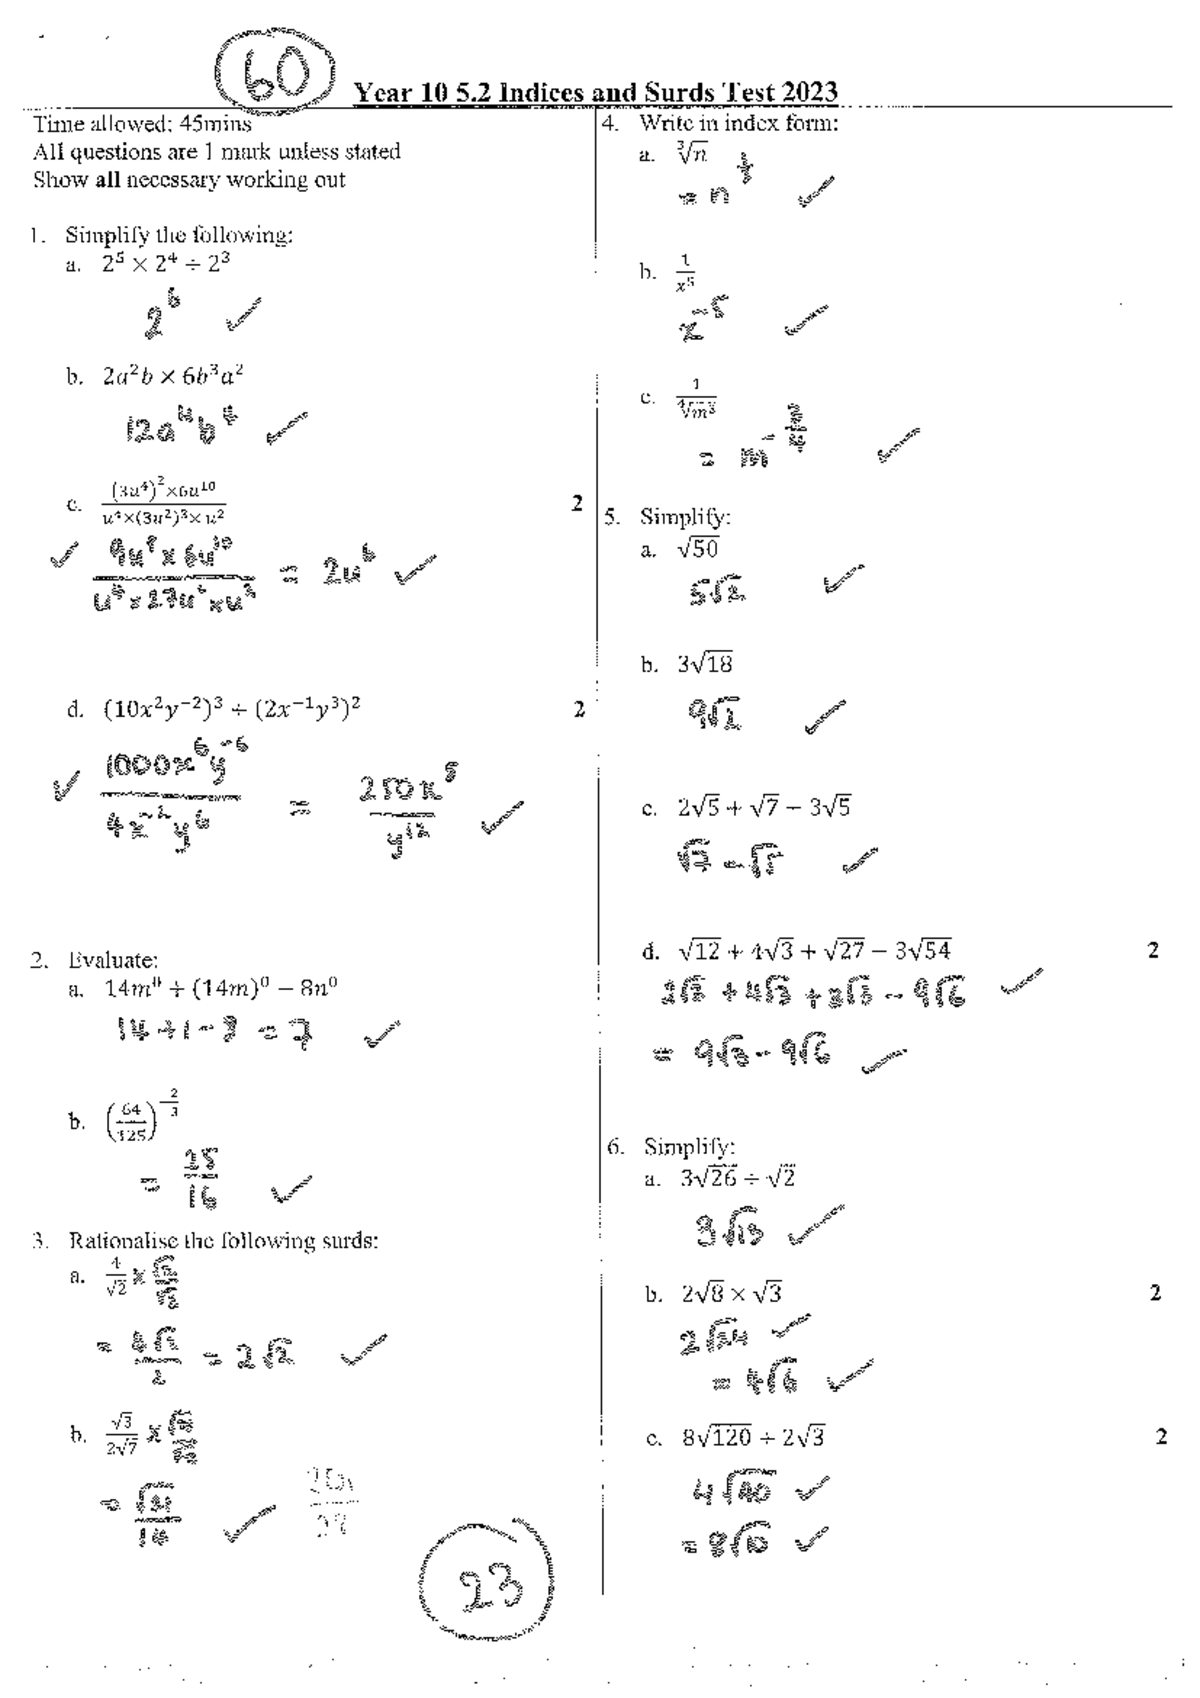 60
Year 10 5.2 Indices and Surds Test 2023
Time allowed: 45mins
All questions are 1 mark unless stated
Show all necessary working out
1. Simplify the following:
a. 2⁵ × 2⁴ ÷ 2³
2⁶ ✓
b. 2a²b × 6b³a²
12a⁴b⁴ ✓
c. (3u⁴)²×6u¹⁰ / u⁴×(3u²)³×u² 2
✓ 9u⁸×6u¹⁰ / u⁴×27u⁶×u² = 2u⁶ ✓
d. (10x²y⁻²)³ ÷ (2x⁻¹y³)² 2
✓ 1000x⁶y⁻⁶ / 4x⁻²y⁶ = 250x⁸ / y¹² ✓
2. Evaluate:
a. 14m⁰ + (14m)⁰ − 8n⁰
14 + 1 − 8 = 7 ✓
b. (64/125)^(−2/3)
= 25/16 ✓
3. Rationalise the following surds:
a. 4/√2 × √2/√2
= 4√2/2 = 2√2 ✓
b. √3/2√7 ×
= √21/14 ✓
23
4. Write in index form:
a. ∛n
= n^(1/3) ✓
b. 1/x⁵
x⁻⁵ ✓
c. 1/∜m³
= m^(−3/4) ✓
5. Simplify:
a. √50
5√2 ✓
b. 3√18
9√2 ✓
c. 2√5 + √7 − 3√5
√7 − √5 ✓
d. √12 + 4√3 + √27 − 3√54 2
2√3 + 4√3 + 3√3 − 9√6 ✓
= 9√3 − 9√6 ✓
6. Simplify:
a. 3√26 ÷ √2
3√13 ✓
b. 2√8 × √3 2
2√24 ✓
= 4√6 ✓
c. 8√120 ÷ 2√3 2
4√40 ✓
= 8√10 ✓